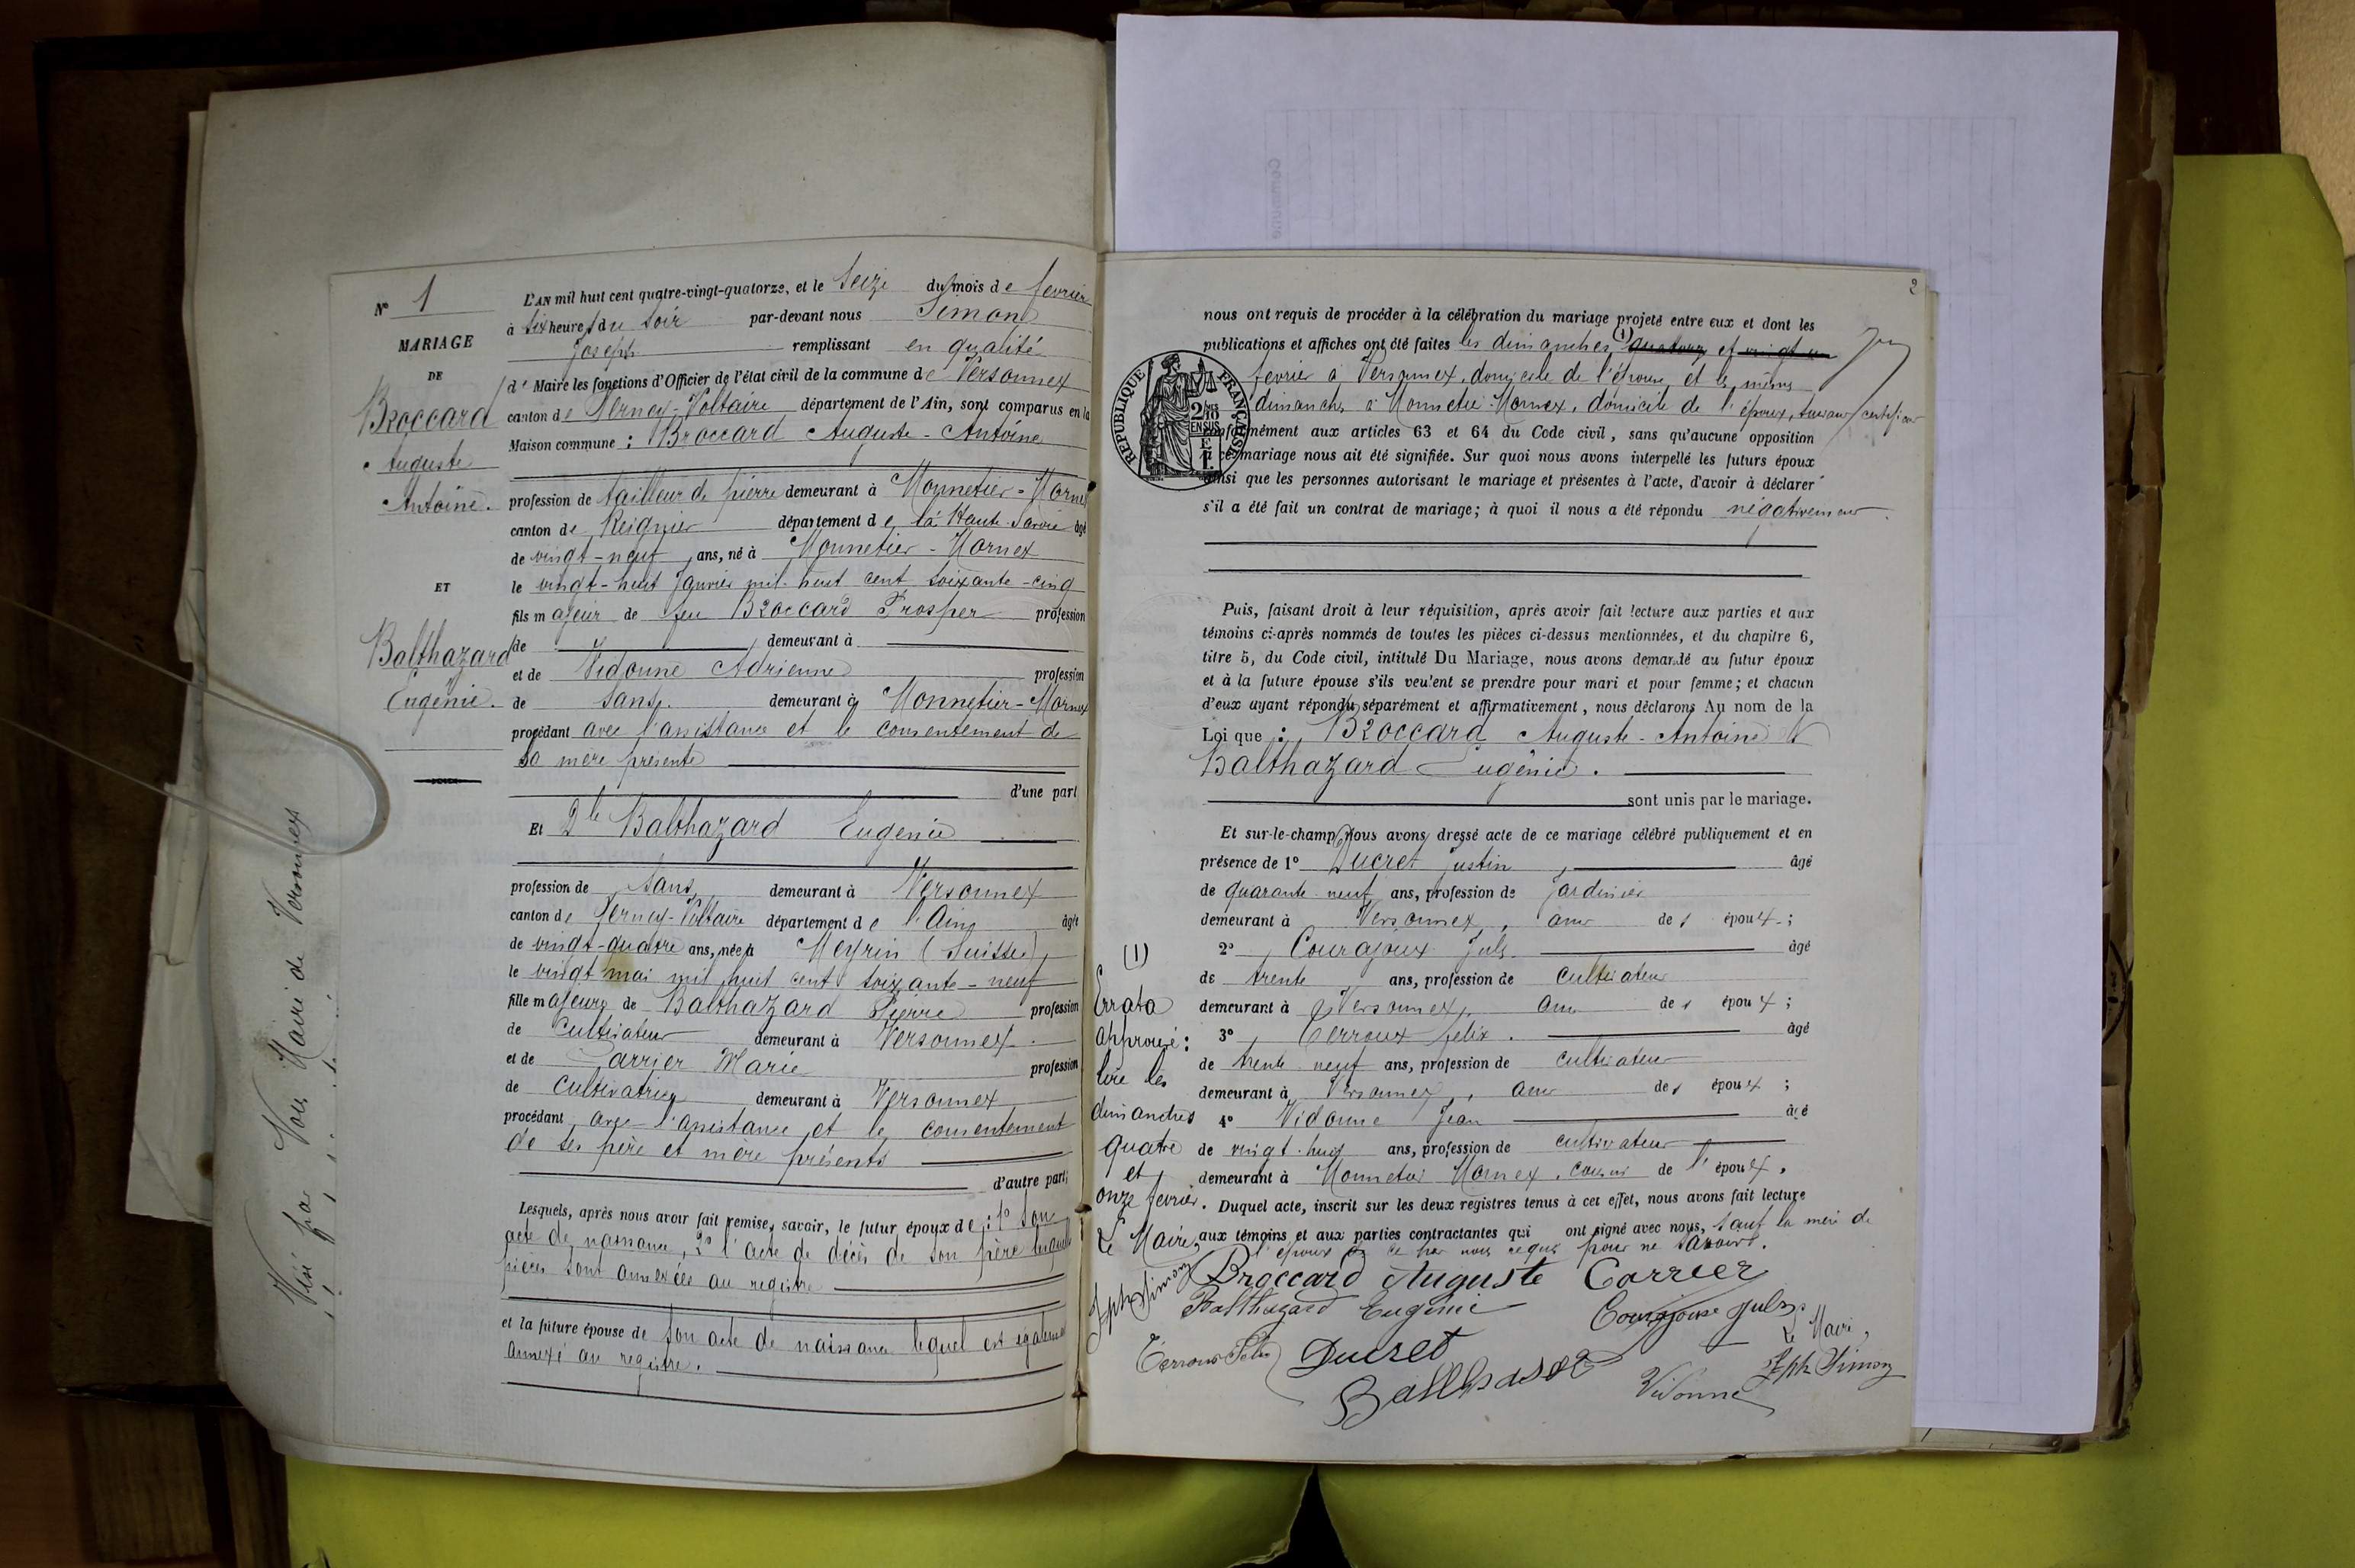 N° 1
MARIAGE
DE
Broccard
Auguste
Antoine.
ET
Balthazard
Eugénie.
Visé par Nous Maire de Versonnex
L'AN mil huit cent quatre-vingt-quatorze, et le Seize du mois de février
à Six heures du soir par-devant nous Simon
Joseph remplissant en qualité
de Maire les fonctions d'Officier de l'état civil de la commune de Versonnex
canton de Ferney-Voltaire département de l'Ain, sont comparus en la
Maison commune : Broccard Auguste-Antoine
profession de tailleur de pierre demeurant à Monnetier-Mornex
canton de Reignier département de la Haute-Savoie âgé
de vingt-neuf ans, né à Monnetier-Mornex
le vingt-huit Janvier mil huit cent soixante-cinq
fils majeur de feu Broccard Prosper profession
de demeurant à
et de Vidonne Adrienne profession
de sans demeurant à Monnetier-Mornex
procédant avec l'assistance et le consentement de
sa mère présente
d'une part
Et Dlle Balthazard Eugénie
profession de sans demeurant à Versonnex
canton de Ferney-Voltaire département de l'Ain âgée
de vingt-quatre ans, née à Meyrin (Suisse)
le vingt mai mil huit cent soixante-neuf
fille majeure de Balthazard Pierre profession
de cultivateur demeurant à Versonnex
et de Carrier Marie profession
de cultivatrice demeurant à Versonnex
procédant avec l'assistance et le consentement
de ses père et mère présents
d'autre part;
Lesquels, après nous avoir fait remise, savoir, le futur époux de : 1° son
acte de naissance, 2° l'acte de décès de son père lesquelles
pièces sont annexées au registre
et la future épouse de son acte de naissance lequel est également
annexé au registre.
2
nous ont requis de procéder à la célébration du mariage projeté entre eux et dont les
publications et affiches ont été faites les dimanches (1) quatorze et vingt un
février à Versonnex, domicile de l'épouse, et les mêmes
dimanches à Monnetier-Mornex, domicile de l'époux, suivant certificat
conformément aux articles 63 et 64 du Code civil, sans qu'aucune opposition
à ce mariage nous ait été signifiée. Sur quoi nous avons interpellé les futurs époux
ainsi que les personnes autorisant le mariage et présentes à l'acte, d'avoir à déclarer
s'il a été fait un contrat de mariage; à quoi il nous a été répondu négativement.
RÉPUBLIQUE FRANÇAISE
2/10
EN SUS
Puis, faisant droit à leur réquisition, après avoir fait lecture aux parties et aux
témoins ci-après nommés de toutes les pièces ci-dessus mentionnées, et du chapitre 6,
titre 5, du Code civil, intitulé Du Mariage, nous avons demandé au futur époux
et à la future épouse s'ils veulent se prendre pour mari et pour femme; et chacun
d'eux ayant répondu séparément et affirmativement, nous déclarons Au nom de la
Loi que : Broccard Auguste-Antoine et
Balthazard Eugénie.
sont unis par le mariage.
Et sur-le-champ Nous avons dressé acte de ce mariage célébré publiquement et en
présence de 1° Ducret Justin, âgé
de quarante-neuf ans, profession de jardinier
demeurant à Versonnex, ami des époux;
2° Courajoux Jules âgé
de trente ans, profession de cultivateur
demeurant à Versonnex, ami des époux;
3° Terroux félix. âgé
de trente neuf ans, profession de cultivateur
demeurant à Versonnex, ami des époux;
4° Vidonne Jean âgé
de vingt-huit ans, profession de cultivateur
demeurant à Monnetier Mornex, cousin de l'époux.
Duquel acte, inscrit sur les deux registres tenus à cet effet, nous avons fait lecture
aux témoins et aux parties contractantes qui ont signé avec nous, sauf la mère de
l'époux de ce par nous requis pour ne savoir.
(1)
Errata
approuvé :
lire les
dimanches
quatre
et
onze février.
Le Maire,
Jph Simon
Broccard Auguste Carrier
Balthazard Eugénie Courajoux Jules
Terroux Félix Ducret Le Maire,
Balthasard Vidonne Jph Simon